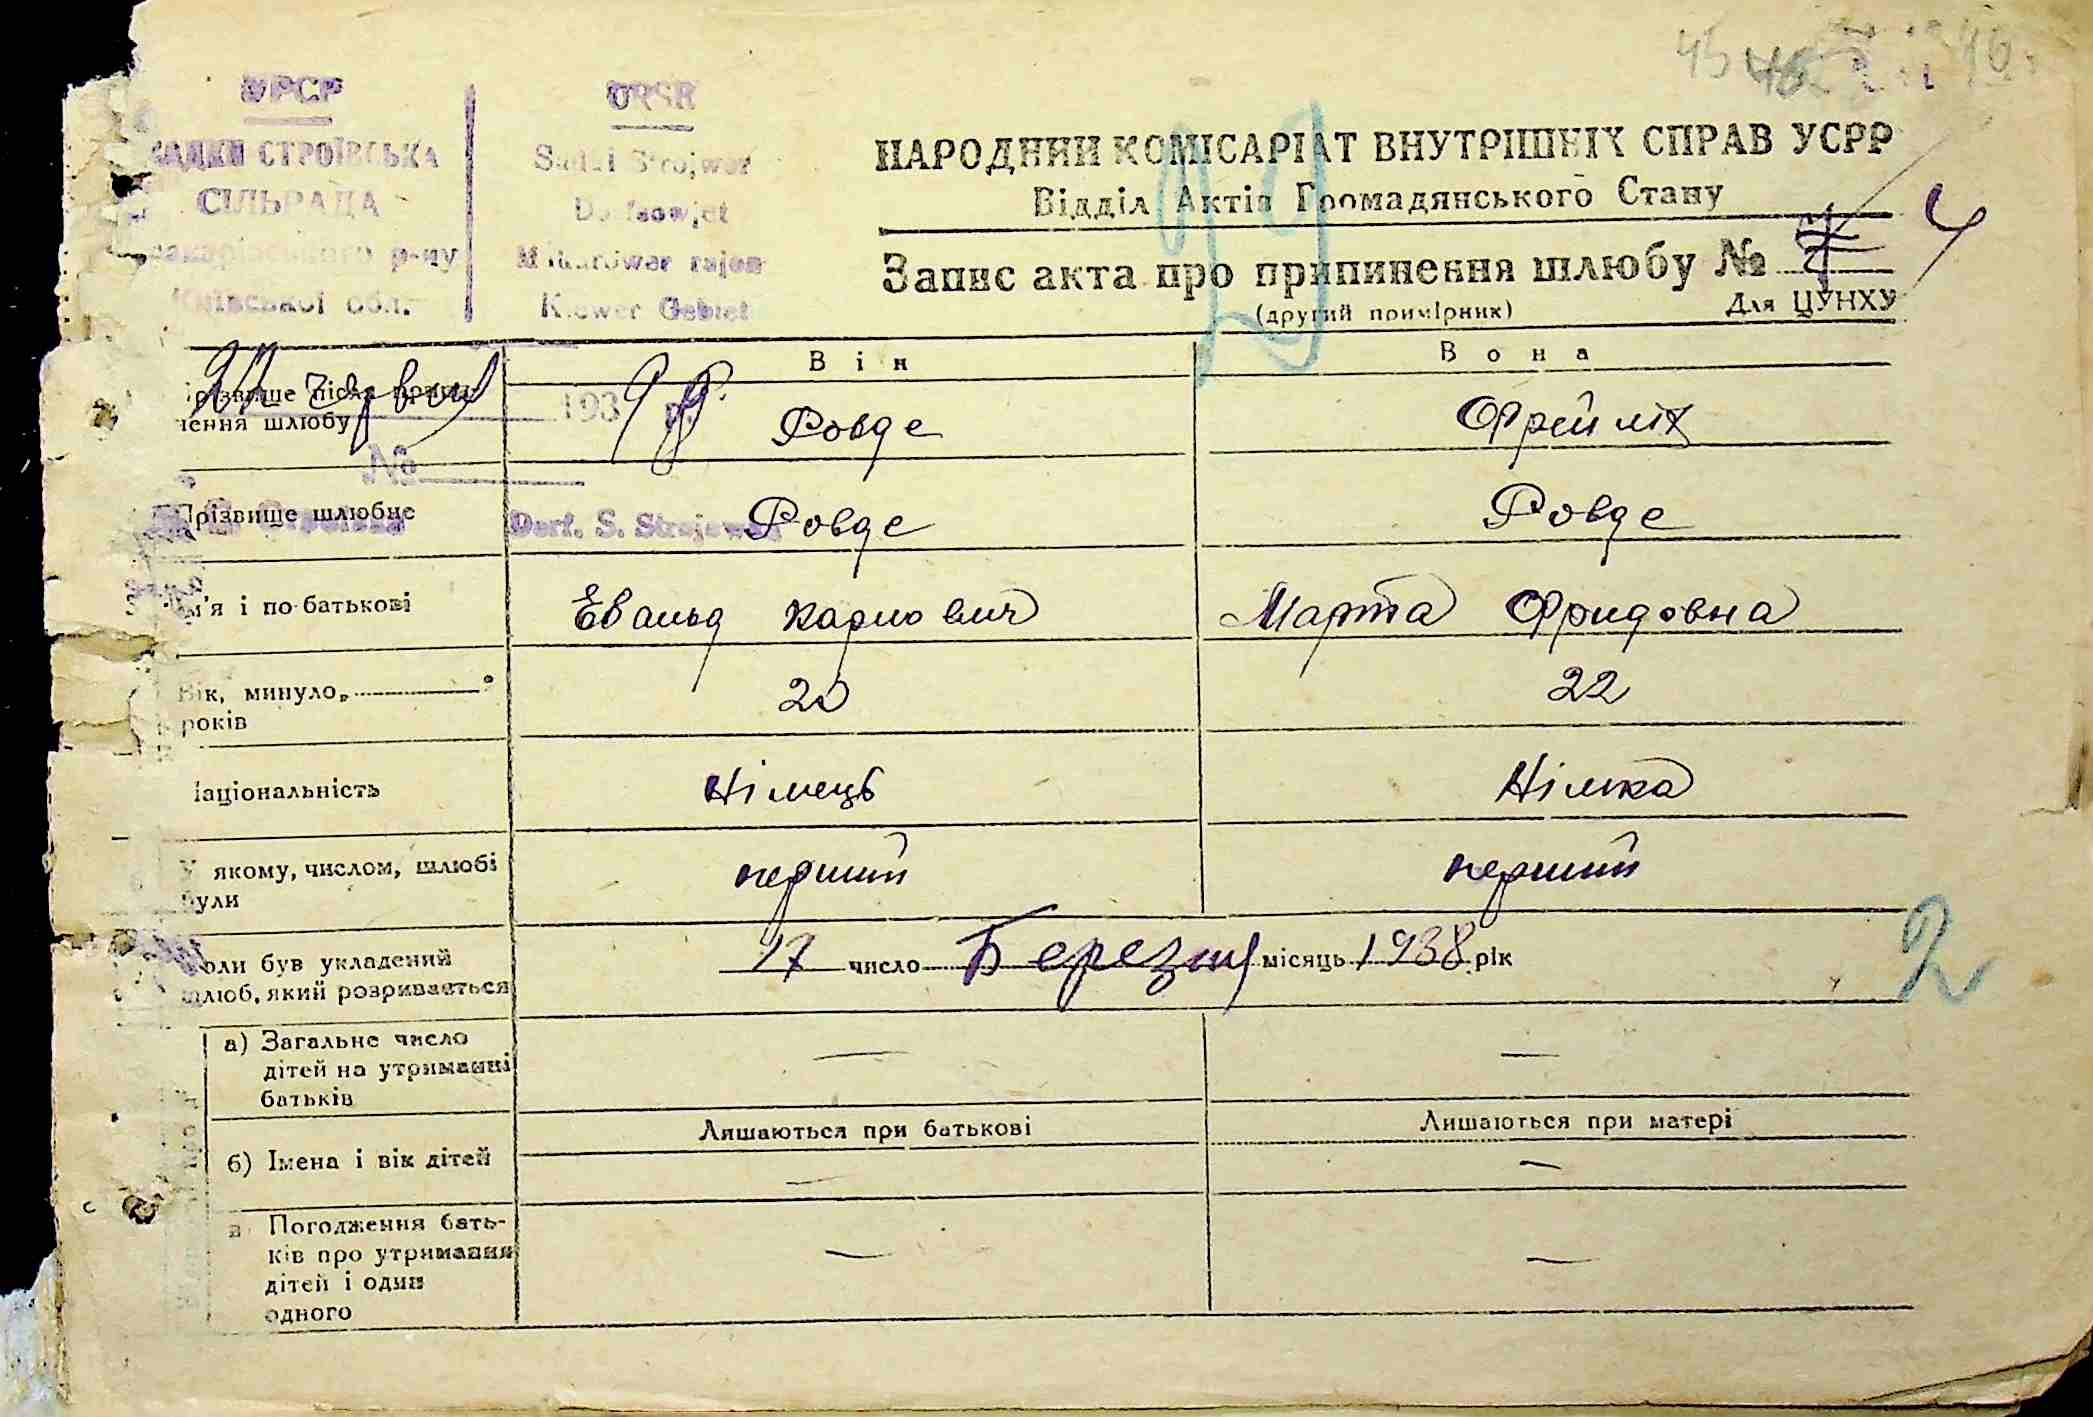 УРСР
САДКИ СТРОЇВСЬКА
СІЛЬРАДА
Макарівського р-ну
Київської обл.
URSR
Sadki Strojwer
Dorfsowjet
Makarower rajon
Kiewer Gebiet
НАРОДНИЙ КОМІСАРІАТ ВНУТРІШНІХ СПРАВ УСРР
Відділ Актів Громадянського Стану
Запис акта про припинення шлюбу № 4
(другий примірник) Для ЦУНХУ
29
Червня 1939 р.
№
Dorf. S. Strojewka
Він Вона
Прізвище після припинення шлюбу Ровде Фрейліх
Прізвище шлюбне Ровде Ровде
Ім'я і по-батькові Евальд Карлович Марта Фридовна
Вік, минуло
років 20 22
Національність Німець Німка
У якому, числом, шлюбі
були перший перший
Коли був укладений
шлюб, який розривається 17 число Березня місяць 1938 рік
2
а) Загальне число
дітей на утриманні
батьків — —
б) Імена і вік дітей
Лишаються при батькові Лишаються при матері
— —
в Погодження бать-
ків про утримання
дітей і один
одного — —